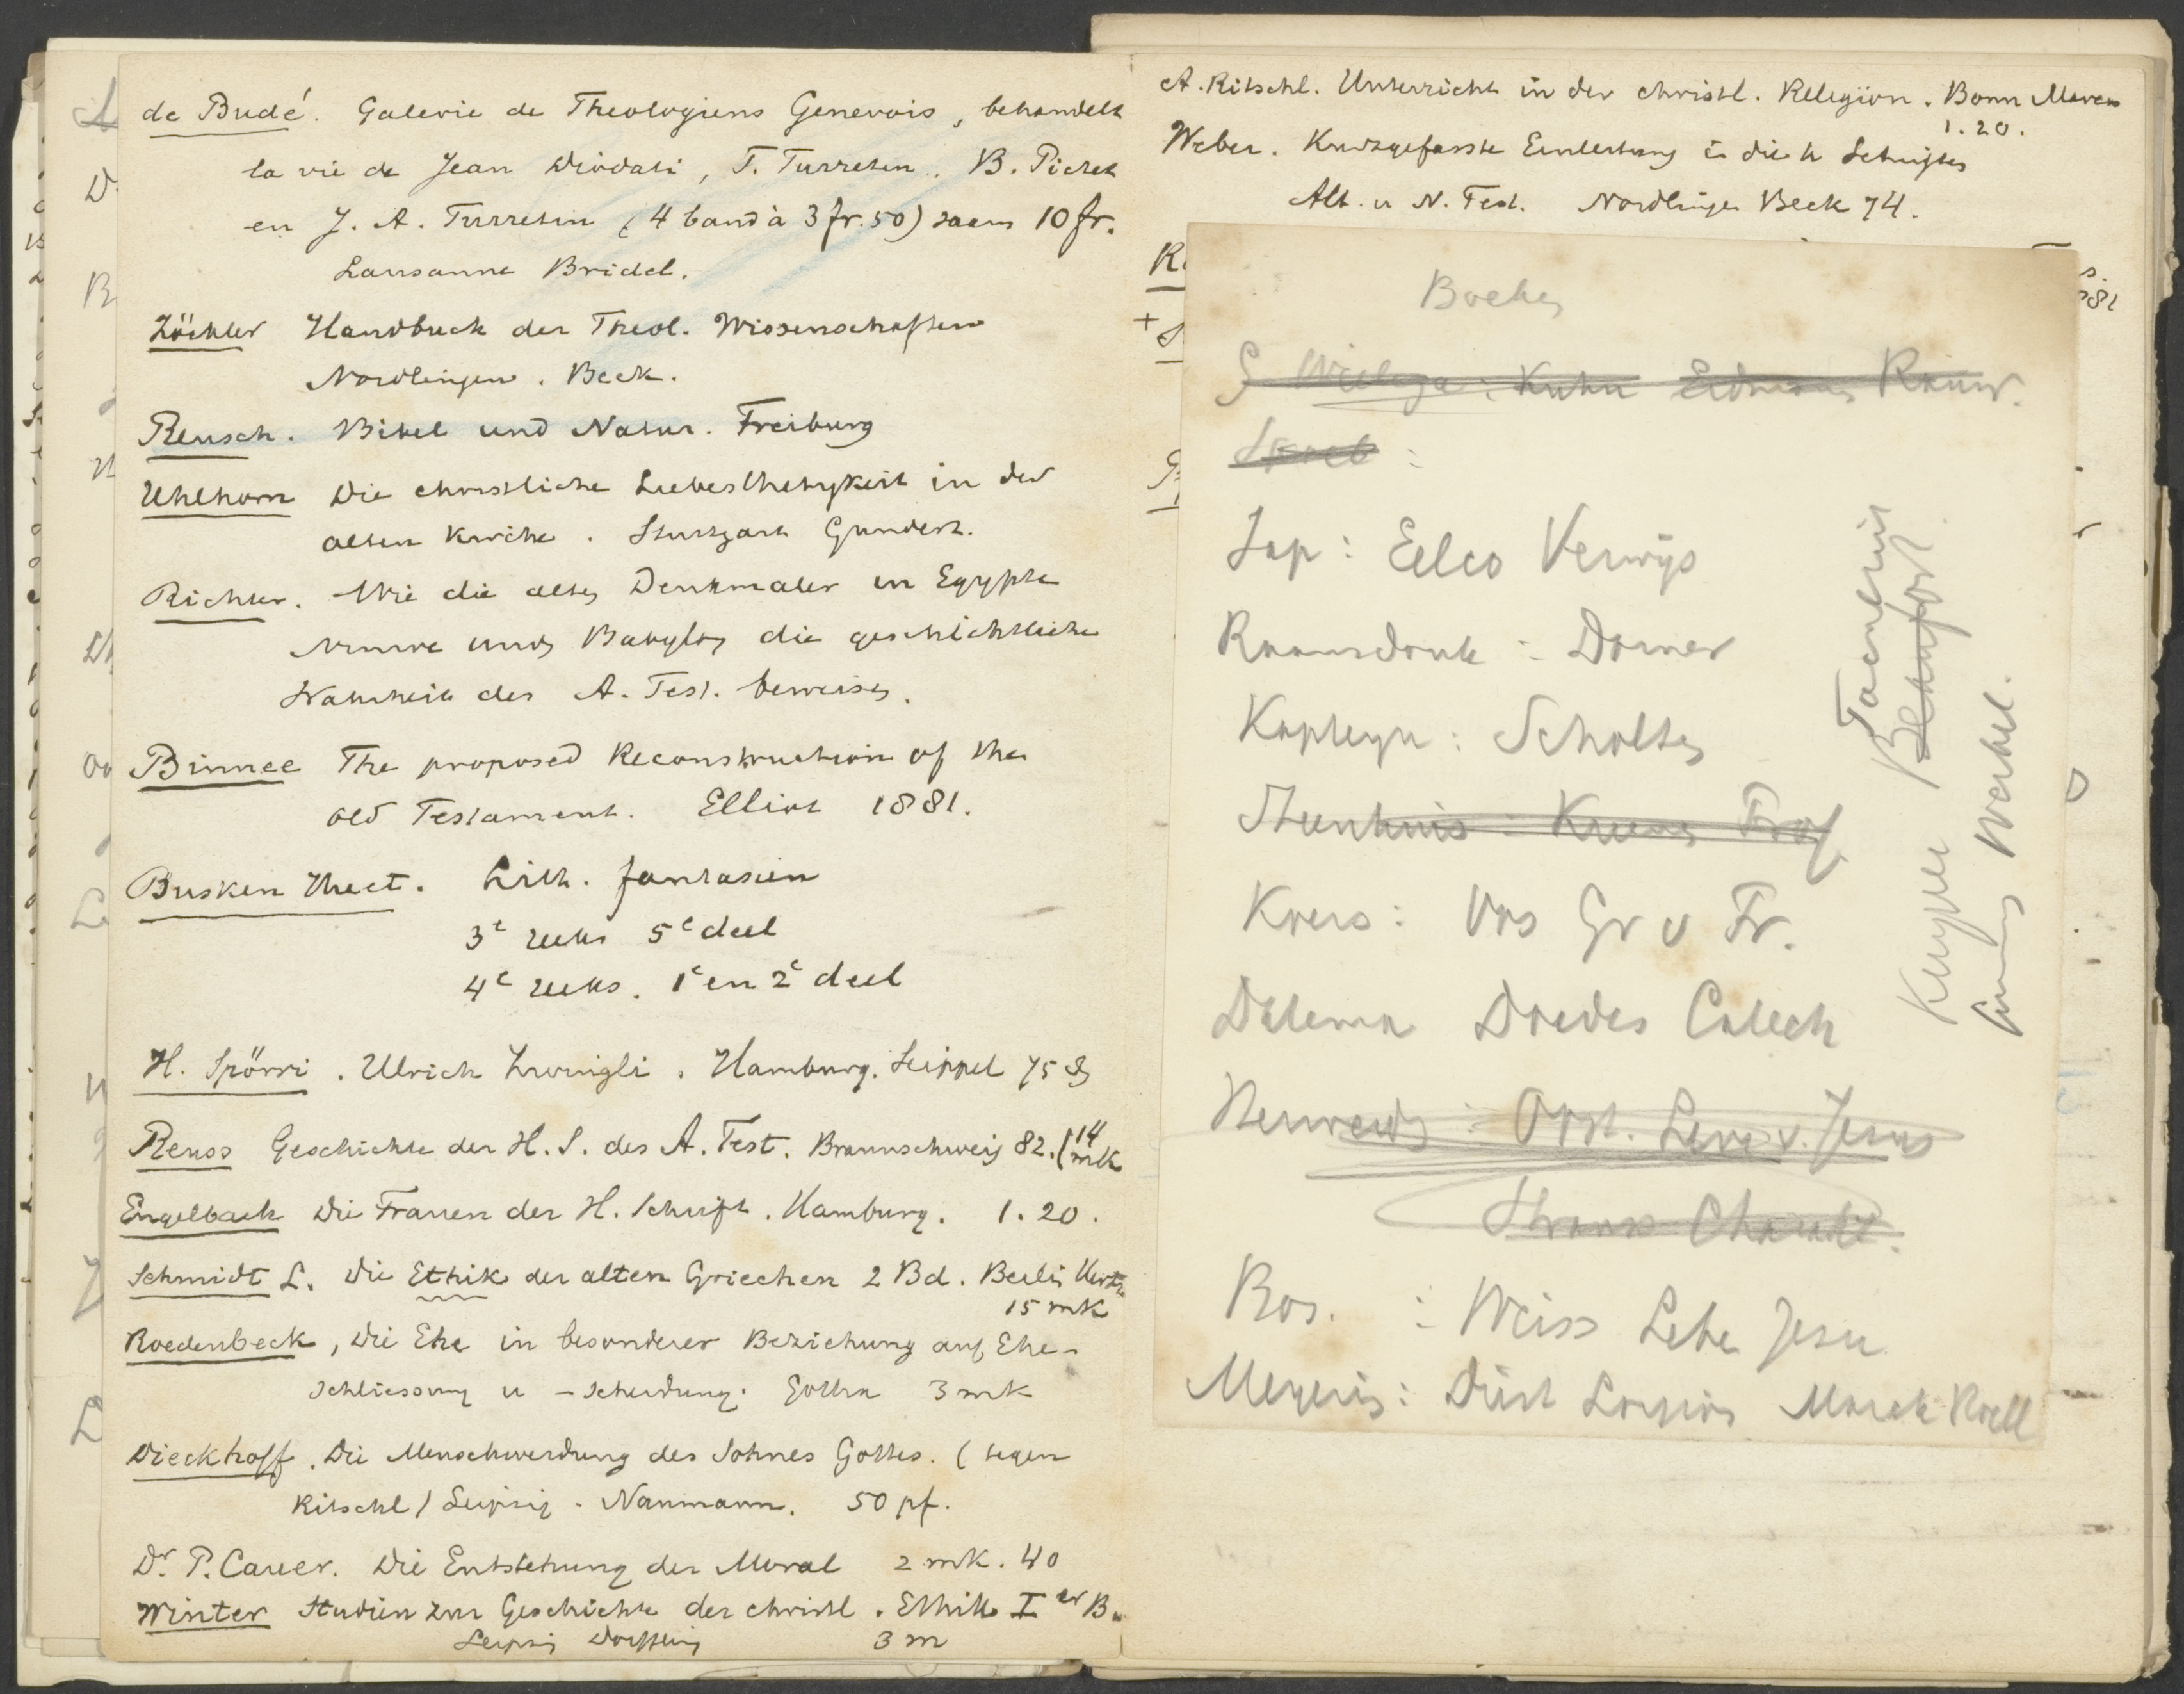 de Budé. Galerie de Theologiens Genevois, behandelt
la vie de Jean Diodati, F. Turretin, B. Pictet
en J. A. Turretin (4 band à 3 fr. 50) saam 10 fr.
Lausanne Bridel.
Zöckler Handbuch der Theol. Wissenschaften
Nordlingen. Beck.
Reusch. Bibel und Natur. Freiburg
Uhlhorn Die christliche Liebesthetygkeit in der
alten Kirche. Stuttgart Gundert.
Richter. Wie die alten Denkmaler in Egypte
Ninive und Babylon die geschichtliche
Wahrheit des A. Test. beweisen.
Binnee The proposed Reconstruction of the
old Testament. Elliot 1881.
Busken Huet. Lith. fantasien
3e reeks 5e deel
4e reeks. 1e en 2e deel
H. Spörri. Ulrich Zwingli. Hamburg. Seippel 75
Reuss Geschichte der H. S. des A. Test. Braunschweig 82. (14 mk
Engelbach Die Frauen der H. Schrift. Hamburg. 1.20.
Schmidt L. Die Ethik der alten Griechen 2 Bd. Berlin Hertz
15 mk
Roedenbeck, Die Ehe in besonderer Beziehung auf Ehe-
schliessung u -scheidung. Gotha 3 mk
Dieckhoff. Die Menschwerdung des Sohnes Gottes. (tegen
Ritschl) Leipzig. Naumann. 50 pf.
Dr. P. Caver. Die Entstehung der Moral 2 mk. 40
Winter Studien zur Geschichte der christl. Ethik I er B.
Leipzig Dorffling 3 m
A. Ritschl. Unterricht in der christl. Religion. Bonn Marcus
1.20.
Weber. Kurzgefasste Einleitung in die h Schriften
Alt. u N. Test. Nordlingen Beck 74.
Boeken
G Wielenga: Kuhn Rauw.
Jap: Eelco Verwijs
Raamsdonk: Dorner
Kapteyn: Scholten
Steenhuis:
Kreis: Vos Gr v Fr.
Datema Doedes Catech
Opst. Leven v. Jezus
Strauss
Bos. : Weiss Lebe Jesu
Meyering: Marck
Kuyper